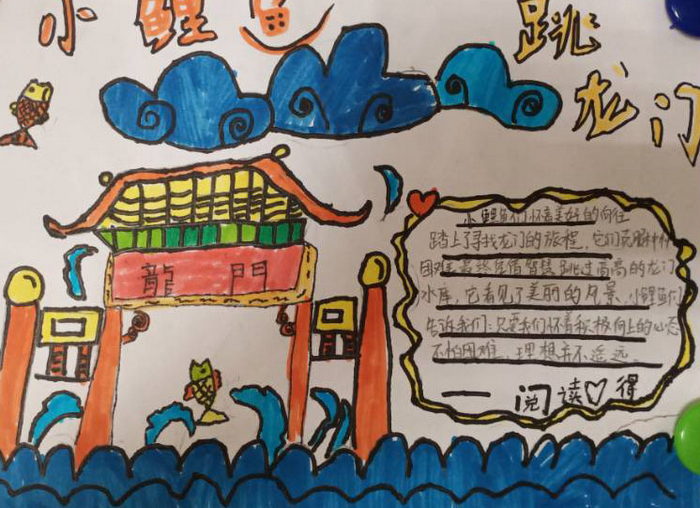 小鲤鱼
跳
龙门
龍門
小鲤鱼们怀着美好的向往
踏上了寻找龙门的旅程，它们克服种种
困难最终凭借智慧跳过高高的龙门
水库，它看见了美丽的风景，小鲤鱼们
告诉我们：只要我们怀着积极向上的心态
不怕困难，理想并不遥远。
一 阅读♡得